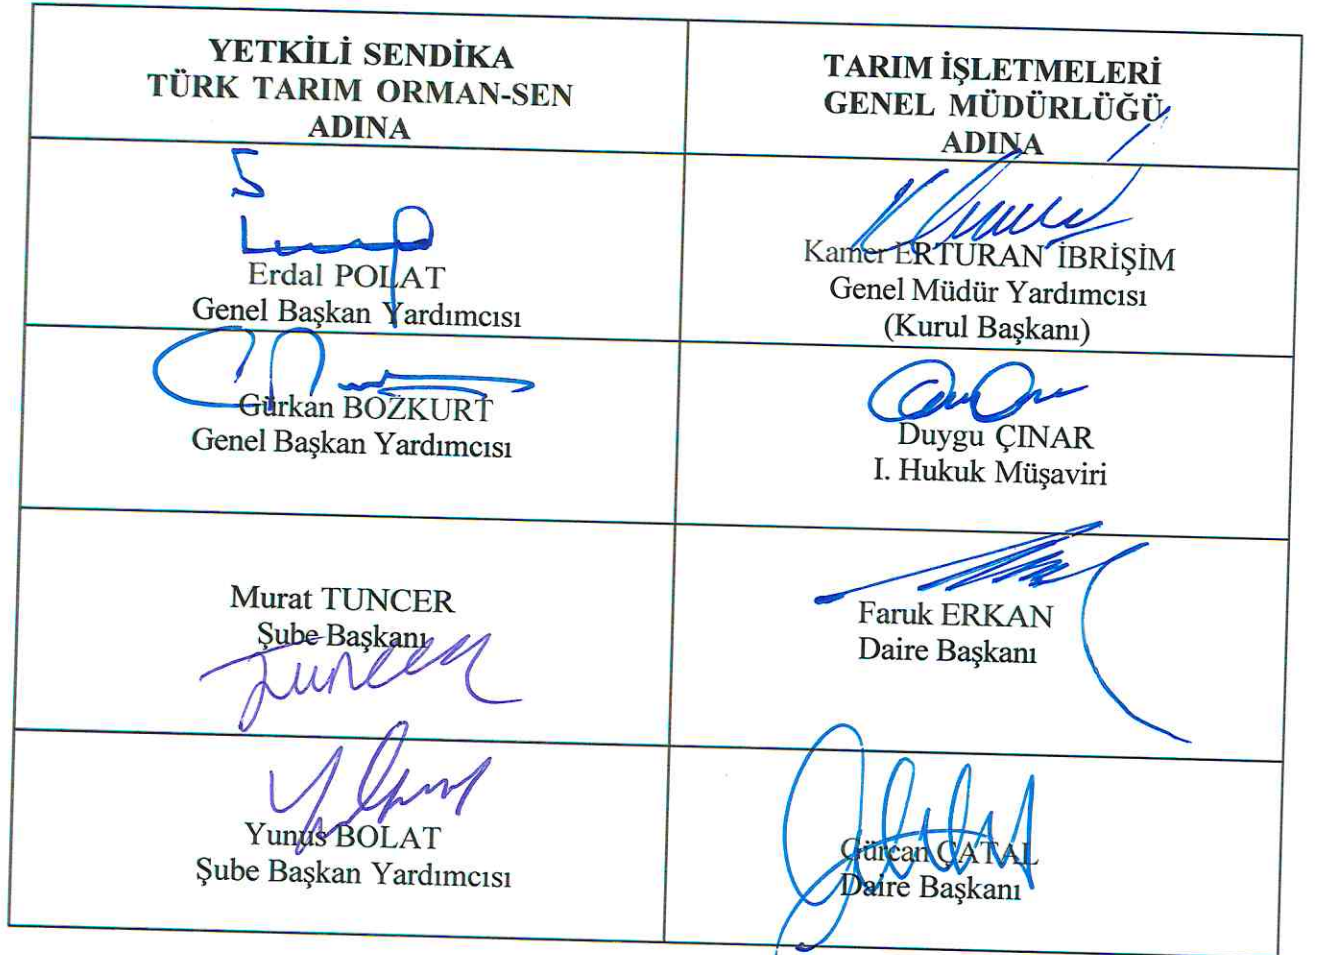 YETKİLİ SENDİKA
TÜRK TARIM ORMAN-SEN
ADINA
TARIM İŞLETMELERİ
GENEL MÜDÜRLÜĞÜ
ADINA
Erdal POLAT
Genel Başkan Yardımcısı
Kamer ERTURAN İBRİŞİM
Genel Müdür Yardımcısı
(Kurul Başkanı)
Gürkan BOZKURT
Genel Başkan Yardımcısı
Duygu ÇINAR
I. Hukuk Müşaviri
Murat TUNCER
Şube Başkanı
Tuncer
Faruk ERKAN
Daire Başkanı
Yunus BOLAT
Şube Başkan Yardımcısı
Gürcan ÇATAL
Daire Başkanı